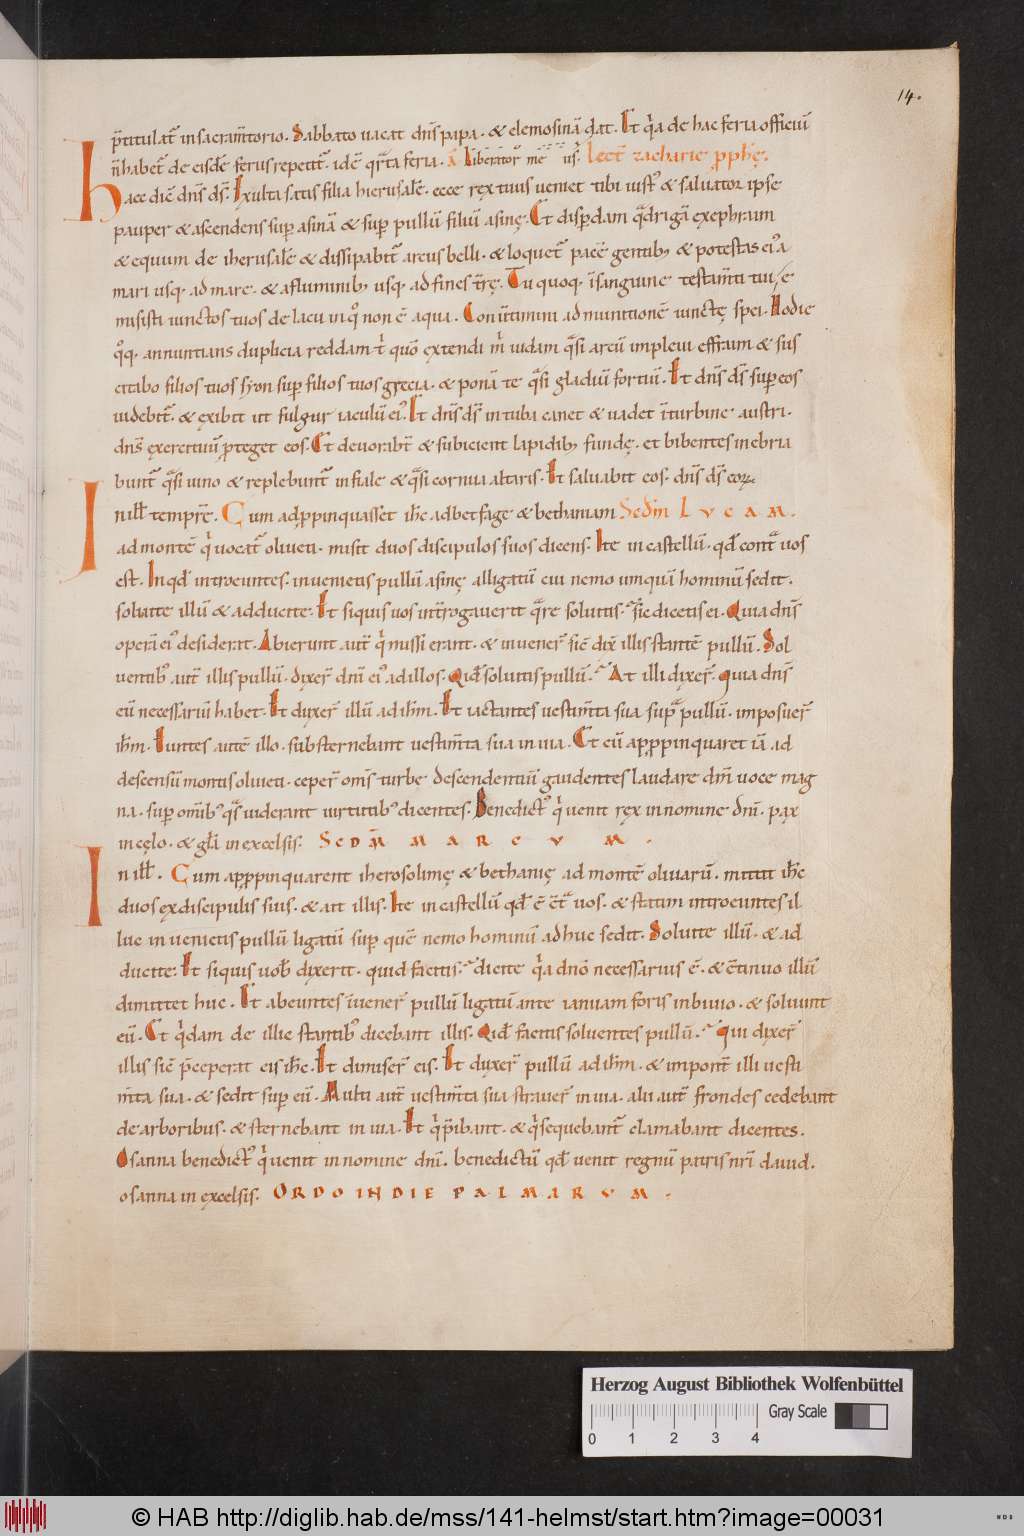 14.
p̄titulat̄ in sacram̄torio. Sabbato uacat dn̄s papa. & elemosinā dat. Et q̄a de hac feria officiū
n̄ habet̄ de eisdē feriis repetit̄. idē q̄rta feria. A Liberator m̄s Lect̄ zacharie p̄ph̄ę.
Haec dic̄ dn̄s ds̄. Exulta satis filia hierusalē. ecce rex tuus ueniet tibi iust᷒ & saluator ipse
pauper & ascendens sup̄ asinā & sup̄ pullū filiū asinę. Et disp̄dam q̄drigā ex ephraim
& equum de iherusalē & dissipabit̄ arcus belli. & loquet̄ pacē gentib; & potestas ei᷒ a
mari usq. ad mare. & a fluminib; usq. ad fines t̄rę. Tu quoq. ī sanguine testam̄ti tui, e
misisti uinctos tuos de lacu in q̊ non ē aqua. Conu̅timini ad munitionē uinctę spei. Hodie
q̊q. annuntians duplicia reddam t̄ quō extendi m̄ iudam q̄si arcū impleui effraim & sus
citabo filios tuos syon sup̄ filios tuos grecia. & ponā te q̄si gladiū fortiū. Et dn̄s ds̄ sup̄ eos
uidebit̄. & exibit ut fulgur iaculū ei᷒. Et dn̄s ds̄ in tuba canet & uadet ī turbine austri.
dn̄s exercituū p̄teget eos. Et deuorabt̄ & subicient lapidib; fundę. et bibentes inebria
bunt̄ q̄si uino & replebunt̄ in fiale & q̄si cornua altaris. Et saluabit eos. dn̄s ds̄ eoꝝ
In ill̄ tempr̄e. Cum adp̄pinquasset ih̄c ad betfage & bethaniam Sed̄m Lucam.
ad montē q̄ uocat̄ oliueti. misit duos discipulos suos dicens. Ite in castellū. qd̄ cont̄ uos
est. In qd̄ introeuntes. inuenietis pullū asinę alligatū cui nemo umquā hominū sedit.
soluite illū & adducite. Et siquis uos int̄rogauerit q̄re soluitis. sic̄ dicetis ei. Quia dn̄s
operā ei᷒ desiderat. Abierunt aut̄ q̄ missi erant. & inuener̄ sic̄ dix̄ illis stantē pullū. Sol
uentib᷒ aut̄ illis pullū. dixer̄ dn̄i ei᷒ ad illos. Qid̄ soluitis pullū. At illi dixer̄. quia dn̄s
eū necessariū habet. Et duxer̄ illū ad ih̄m. Et iactantes uestim̄ta sua sup̄ pullū. imposuer̄
ih̄m. Euntes autē illo. substernebant uestim̄ta sua in uia. Et cū app̄pinquaret iā ad
descensū montis oliueti. ceper̄ om̄s turbe descendentiū gaudentes laudare dm̄ uoce mag
na. sup̄ omīb᷒ q̄s uiderant uirtutib᷒ dicentes. Benedict᷒ q̄ uenit rex in nomine dn̄i. pax
in cęlo. & gl̄a in excelsis. Sed̄m Marcum.
In ill̄. Cum app̄pinquarent iherosolimę & bethanię ad montē oliuarū. mittit ih̄c
duos ex discipulis suis. & ait illis. Ite in castellū qd̄ ē c̄t̄ uos. & statim introeuntes il
luc inuenietis pullū ligatū sup̄ quē nemo hominū adhuc sedit. Soluite illū. & ad
ducite. Et siquis uob̄ dixerit. quid facitis. dicite q̄a dn̄o necessarius ē. & c̄tinuo illū
dimittet huc. Et abeuntes iuener̄ pullū ligatū ante ianuam foris in biuio. & soluunt
eū. Et q̄dam de illic stantib᷒ dicebant illis. Qid̄ facitis soluentes pullū. Qui dixer̄
illis sic̄ p̄ceperat eis ih̄c. Et dimiser̄ eis. Et duxer̄ pullū ad ih̄m. & impont̄ illi uesti
m̄ta sua. & sedit sup̄ eū. Multi aut̄ uestim̄ta sua strauer̄ in uia. alii aut̄ frondes cedebant
de arboribus. & sternebant in uia. Et q̄ p̄ibant. & q̄ sequebant̄ clamabant dicentes.
Osanna benedict᷒ q̄ uenit in nomine dn̄i. benedictū qd̄ uenit regnū patris nr̄i dauid.
osanna in excelsis. Ordo in die palmarum.
Herzog August Bibliothek Wolfenbüttel
Gray Scale
0 1 2 3 4
© HAB http://diglib.hab.de/mss/141-helmst/start.htm?image=00031